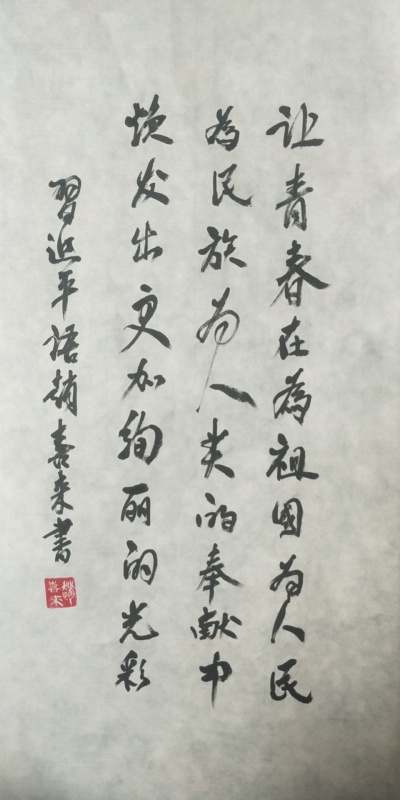 让青春在為祖国为人民
為民族为人类的奉献中
焕发出更加绚丽的光彩
習近平语趙喜来書
喜来